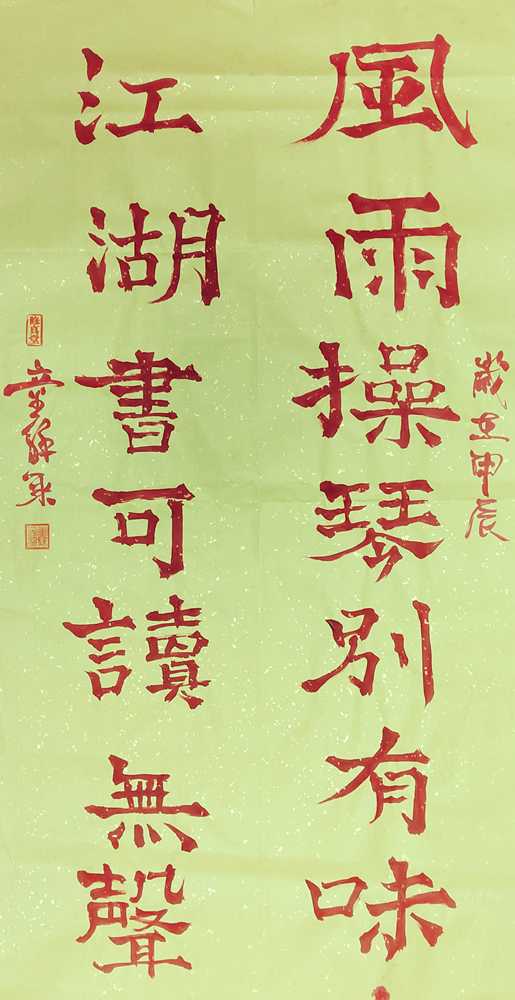 歲在甲辰
風雨操琴別有味
江湖書可讀無聲